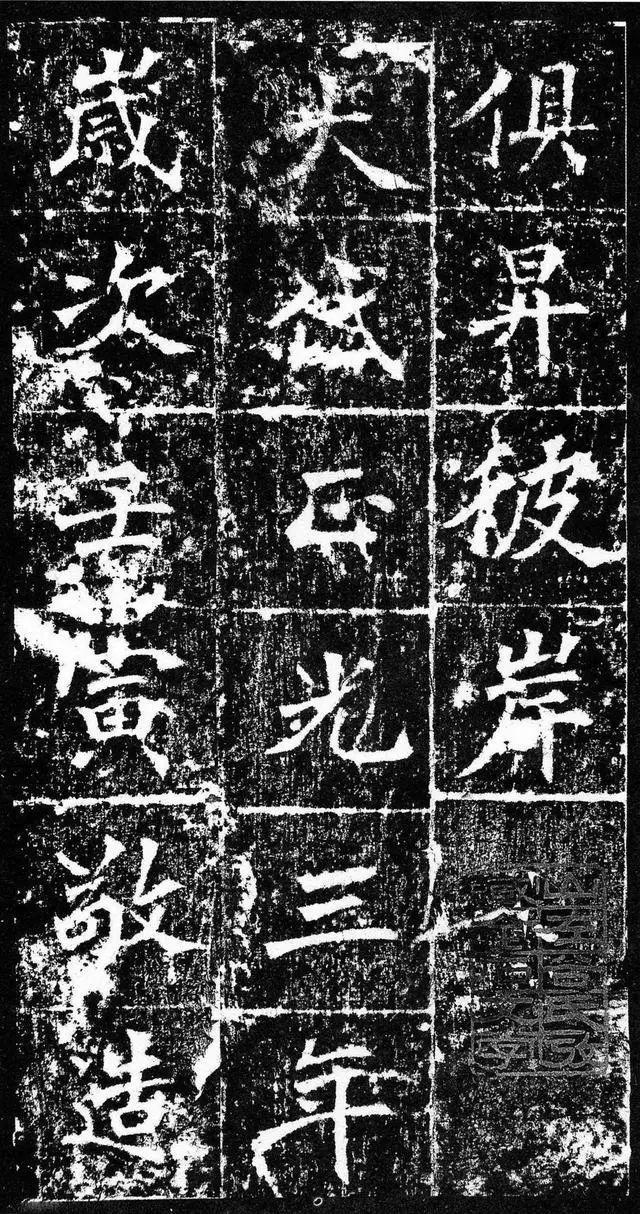 俱昇彼岸
大岱正光三年
歲次壬寅敬造